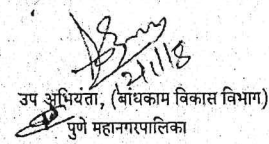 21/1/18
उप अभियंता, (बांधकाम विकास विभाग)
पुणे महानगरपालिका